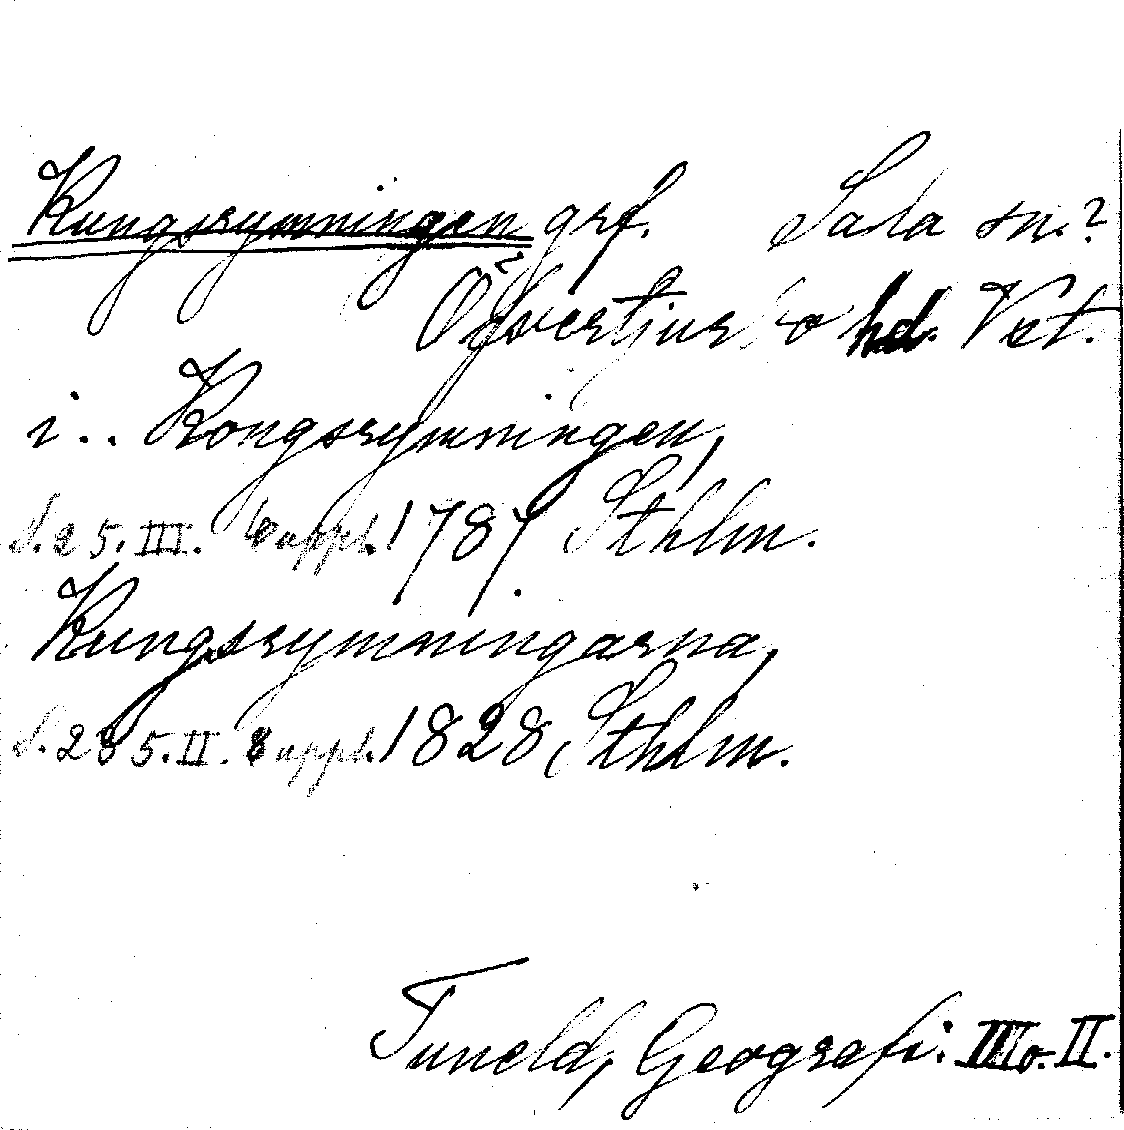 Kungsrymningen grf. Sala sn.?
Övertjurbo hd. Vst.
i.. Kongsrymningen,
S. 25. III. uppl. 1787. Sthlm.
Kungsrymningarna,
S. 235. II. uppl. 1828, Sthlm.
Tuneld, Geografi. III o. II.